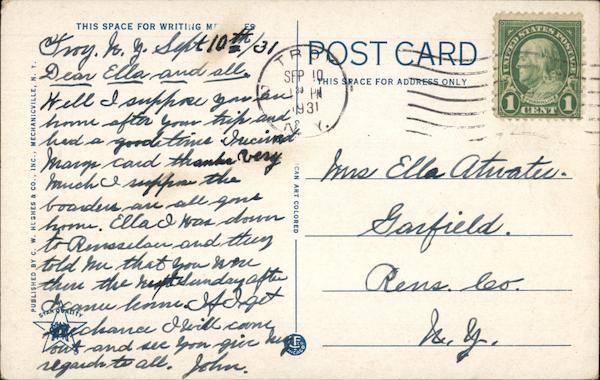 THIS SPACE FOR WRITING
Troy, N.Y. Sept 10th/31
Dear Ella and all.
Well I suppose you are
home after your trip and
had a good time I recived
Marys card thanks very
much I suppose the
boarders are all gone
home. Ella I was down
to Rensselaer and they
told me that you were
there the next Sunday after
I came home. If I get
a chance I will come
out and see you give my
regards to all. John.
PUBLISHED BY C. W. HUGHES & CO., INC., MECHANICVILLE, N. Y.
STAR QUALITY
AN ART COLORED
POST CARD
THIS SPACE FOR ADDRESS ONLY
TRO
SEP 10
PM
1931
N.Y.
UNITED STATES POSTAGE
FRANKLIN
1 CENT 1
Mrs Ella Atwater.
Garfield.
Rens. Co.
N.Y.